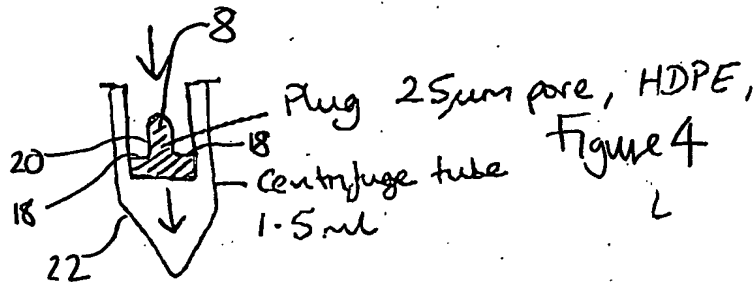 8
Plug 25µm pore, HDPE,
Figure 4
20
18
18
Centrifuge tube
1.5 ml
22